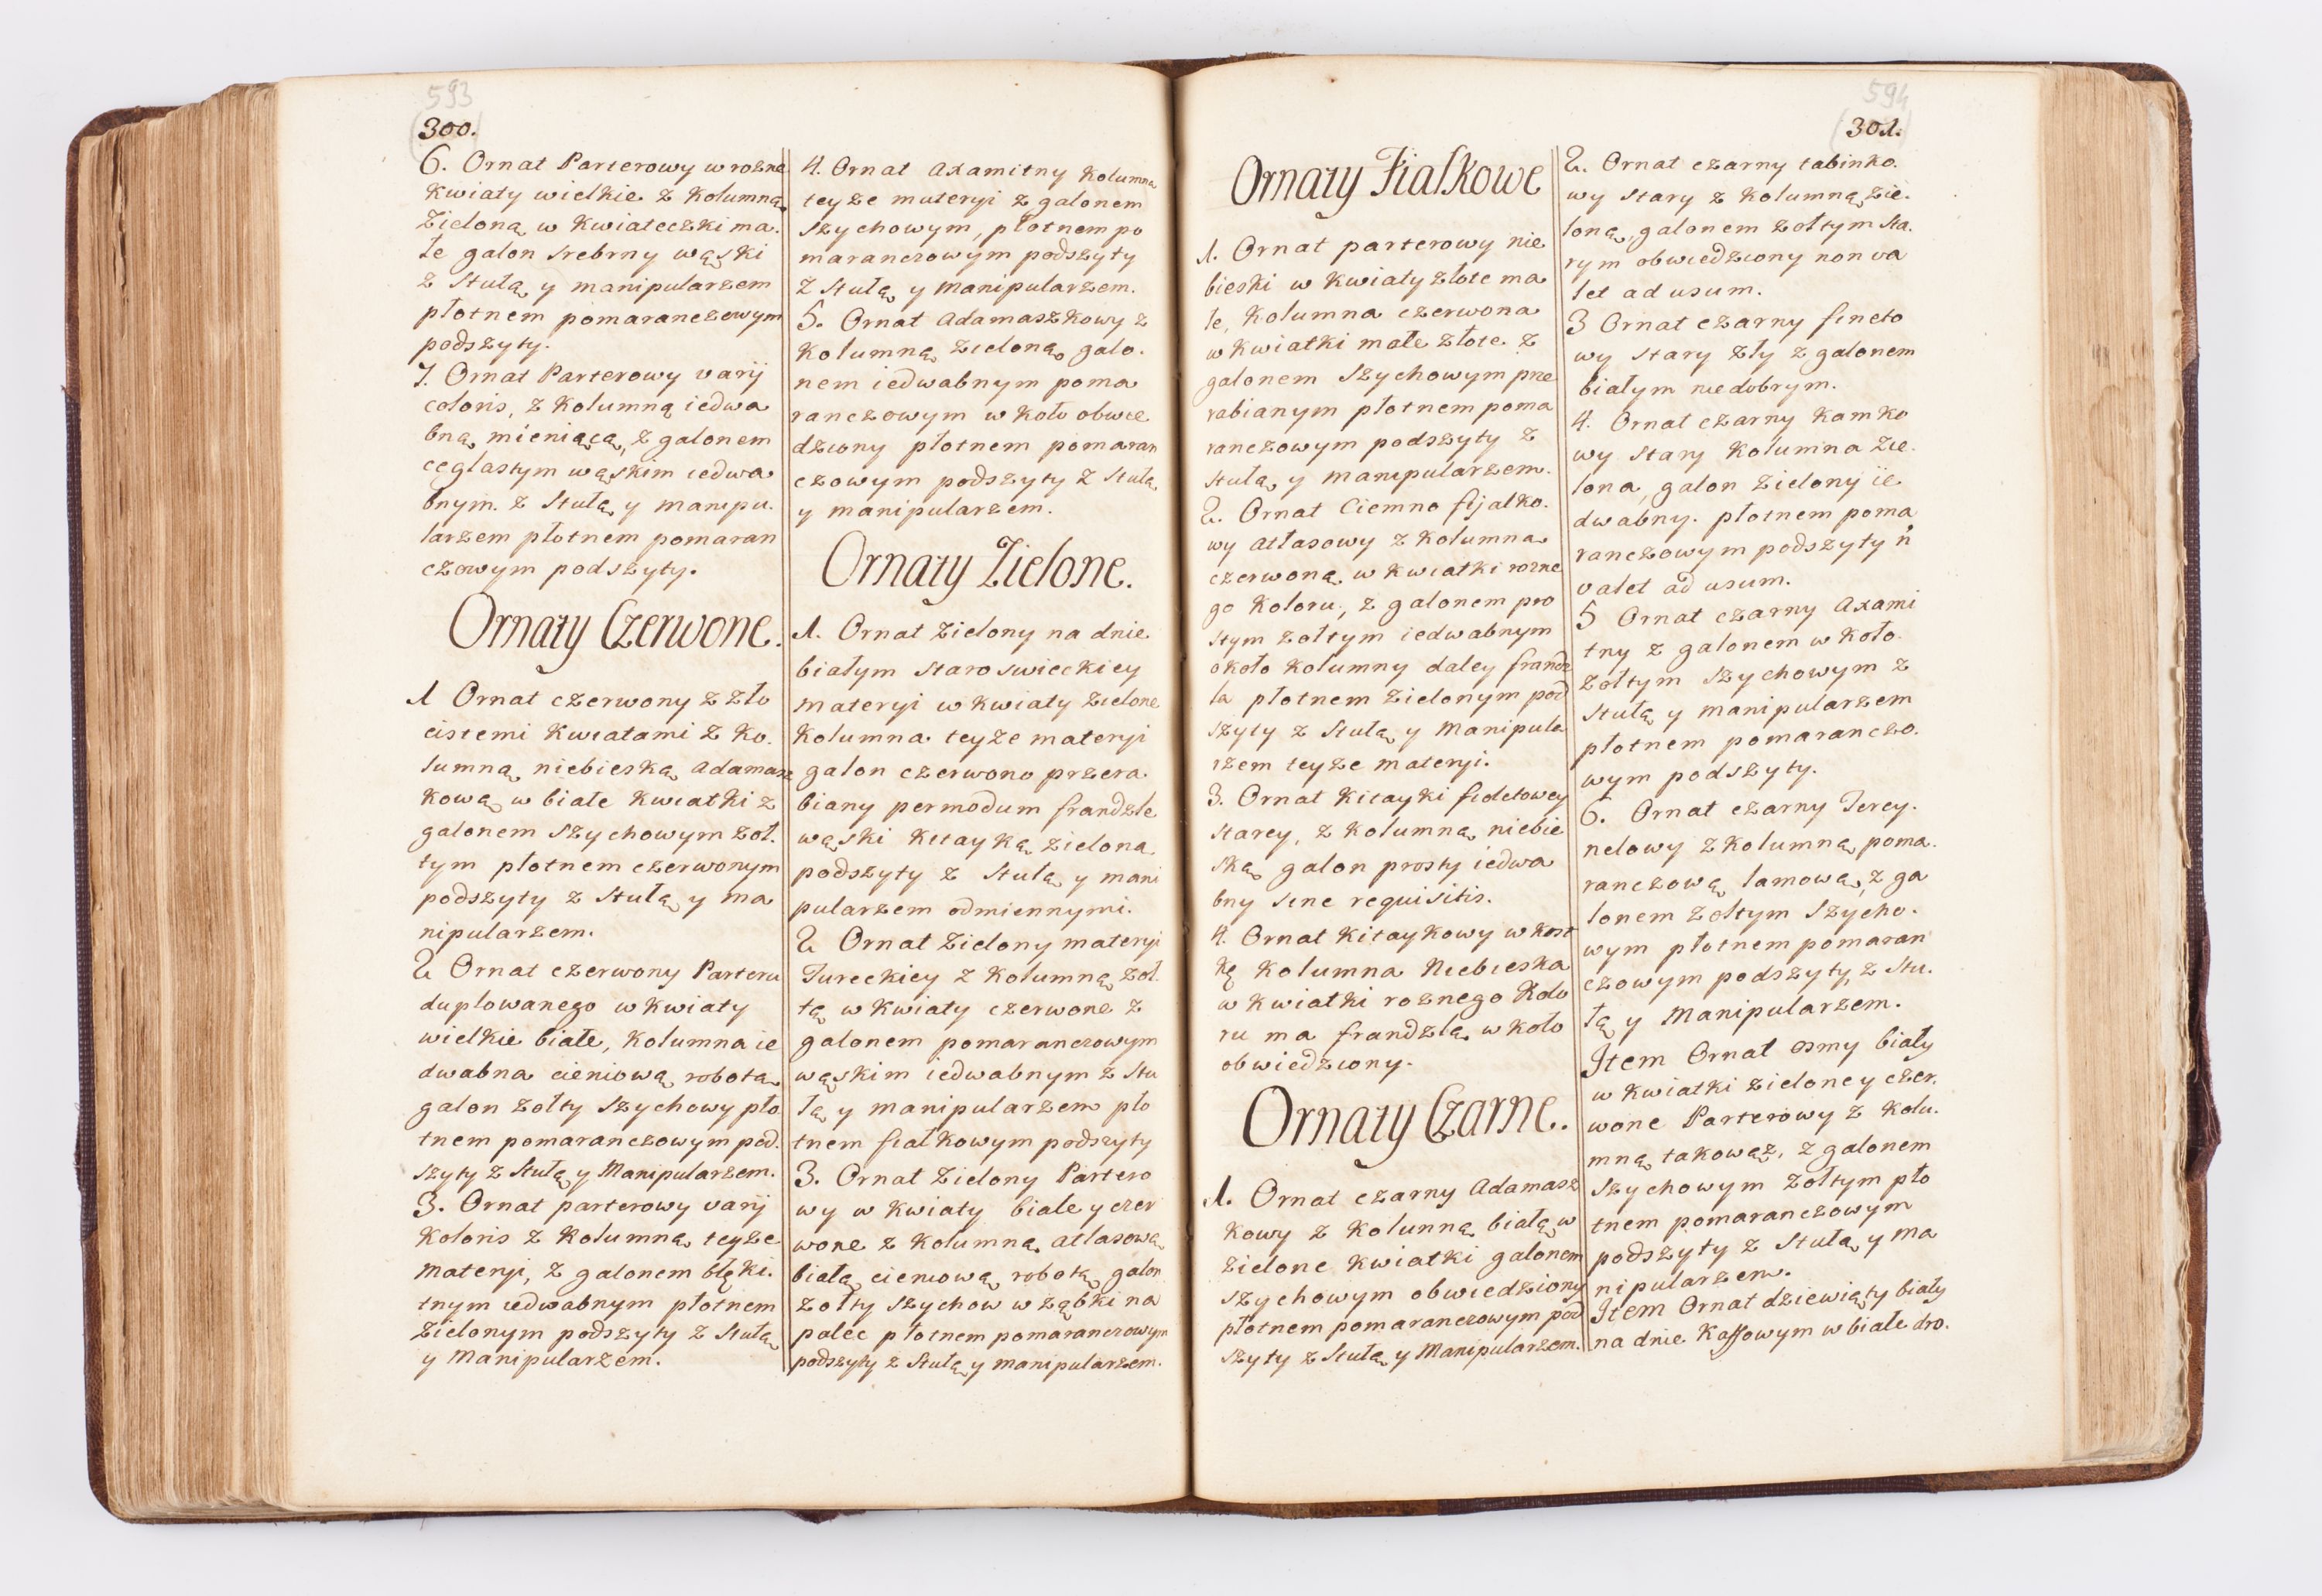 593
300.
6. Ornat Parterowy w rozne
Kwiaty wielkie z Kolumną
Zieloną w Kwiateczki ma.
łe galon srebrny wąski
z Stułą y manipularzem
płotnem pomaranczowym
podszyty.
7. Ornat Parterowy varij
coloris, z Kolumną iedwa
bną mieniącą, z galonem
ceglastym wąskim iedwa
bnym. z Stułą y manipu.
larzem płotnem pomaran
czowym podszyty.
Ornaty Czerwone.
1 Ornat czerwony z zło
cistemi Kwiatami z Ko.
lumną niebieską adamasz
Kową w białe Kwiatki z
galonem Szychowym żoł.
tym płotnem czerwonym
podszyty z Stułą y ma
nipularzem.
2 Ornat czerwony Parteru
duplowanego w Kwiaty
wielkie białe, Kolumna ie
dwabna cieniową robotą
galon żołty Szychowy pło
tnem pomaranczowym pod.
szyty z Stułą y Manipularzem.
3. Ornat parterowy varij
Koloris z Kolumną teyze
Materyi, z galonem błęki.
tnym iedwabnym płotnem
Zielonym podszyty z Stułą
y Manipularzem.
4. Ornat Axamitny Kolumna
teyze materyi z galonem
Szychowym, płotnem po
maranczowym podszyty
z Stułą y Manipularzem.
5. Ornat Adamaszkowy z
Kolumną zieloną galo.
nem iedwabnym poma
ranczowym w Koło obwie
dziony płotnem pomaran
czowym podszyty z Stułą
y manipularzem.
Ornaty Zielone.
1. Ornat Zielony na dnie
białym staroswieckiey
materyi w Kwiaty zielone
Kolumna teyze materyi
galon czerwono przera
biany permodum frandzle
wąski Kitayką zieloną
podszyty z Stułą y mani
pularzem odmiennymi.
2 Ornat Zielony materyi
Tureckiey z Kolumną żoł.
tą w Kwiaty czerwone z
galonem pomaranczowym
wąskim iedwabnym z Stu
łą y manipularzem pło
tnem fiałkowym podszyty
3. Ornat Zielony Partero
wy w Kwiaty białe y czer
wone z Kolumną atlasową
białą cieniową robotą galon
żołty szychow w ząbki na
palec płotnem pomaranczowym
podszyty z Stułą y manipularzem.
594
301.
Ornaty Fiałkowe
1. Ornat parterowy nie
bieski w Kwiaty złote ma
łe, Kolumna czerwona
w Kwiatki małe złote z
galonem Szychowym prze
rabianym płotnem poma
ranczowym podszyty z
Stułą y manipularzem.
2. Ornat Ciemno fijałko.
wy Atłasowy z Kolumną
czerwoną w Kwiatki rozne
go Koloru, z galonem pro
stym żołtym iedwabnym
około Kolumny daley frandz
la płotnem zielonym pod
szyty z Stułą y Manipula
rzem teyze materyi.
3. Ornat Kitayki fioletowey
starey, z Kolumną niebie
ską galon prosty iedwa
bny sine requisitis.
4. Ornat Kitaykowy w Kost
kę Kolumna Niebieska
w Kwiatki roznego Kolo
ru ma frandzlą w Koło
obwiedziony.
Ornaty Czarne.
1. Ornat czarny Adamasz
Kowy z Kolunną białą w
Zielone Kwiatki galonem
szychowym obwiedziony
płotnem pomaranczowym pod
szyty z Stułą y Manipularzem.
2. Ornat czarny tabinko.
wy Stary z Kolumną zie.
loną, galonem żołtym sta.
rym obwiedziony non va
let ad usum.
3 Ornat czarny fineto
wy Stary zły z galonem
białym niedobrym.
4. Ornat czarny Kamko
wy Stary Kolumna zie.
lona, galon Zielony ie
dwabny. płotnem poma
ranczowym podszyty n
valet ad usum.
5 Ornat czarny Axami
tny z galonem w Koło
żołtym szychowym z
Stułą y manipularzem
płotnem pomaranczo.
wym podszyty.
6. Ornat czarny Tercy.
nelowy z Kolumną poma.
ranczową lamową, z ga
lonem żołtym Szycho.
wym płotnem pomaran
czowym podszyty, z Stu.
łą y Manipularzem.
Item Ornat osmy biały
w Kwiatki zielone y czer.
wone Parterowy z Kolu.
mną takowąż, z galonem
szychowym żołtym pło
tnem pomaranczowym
podszyty z Stułą y Ma
nipularzem.
Item Ornat dziewiąty biały
na dnie Kaffowym w białe dro.